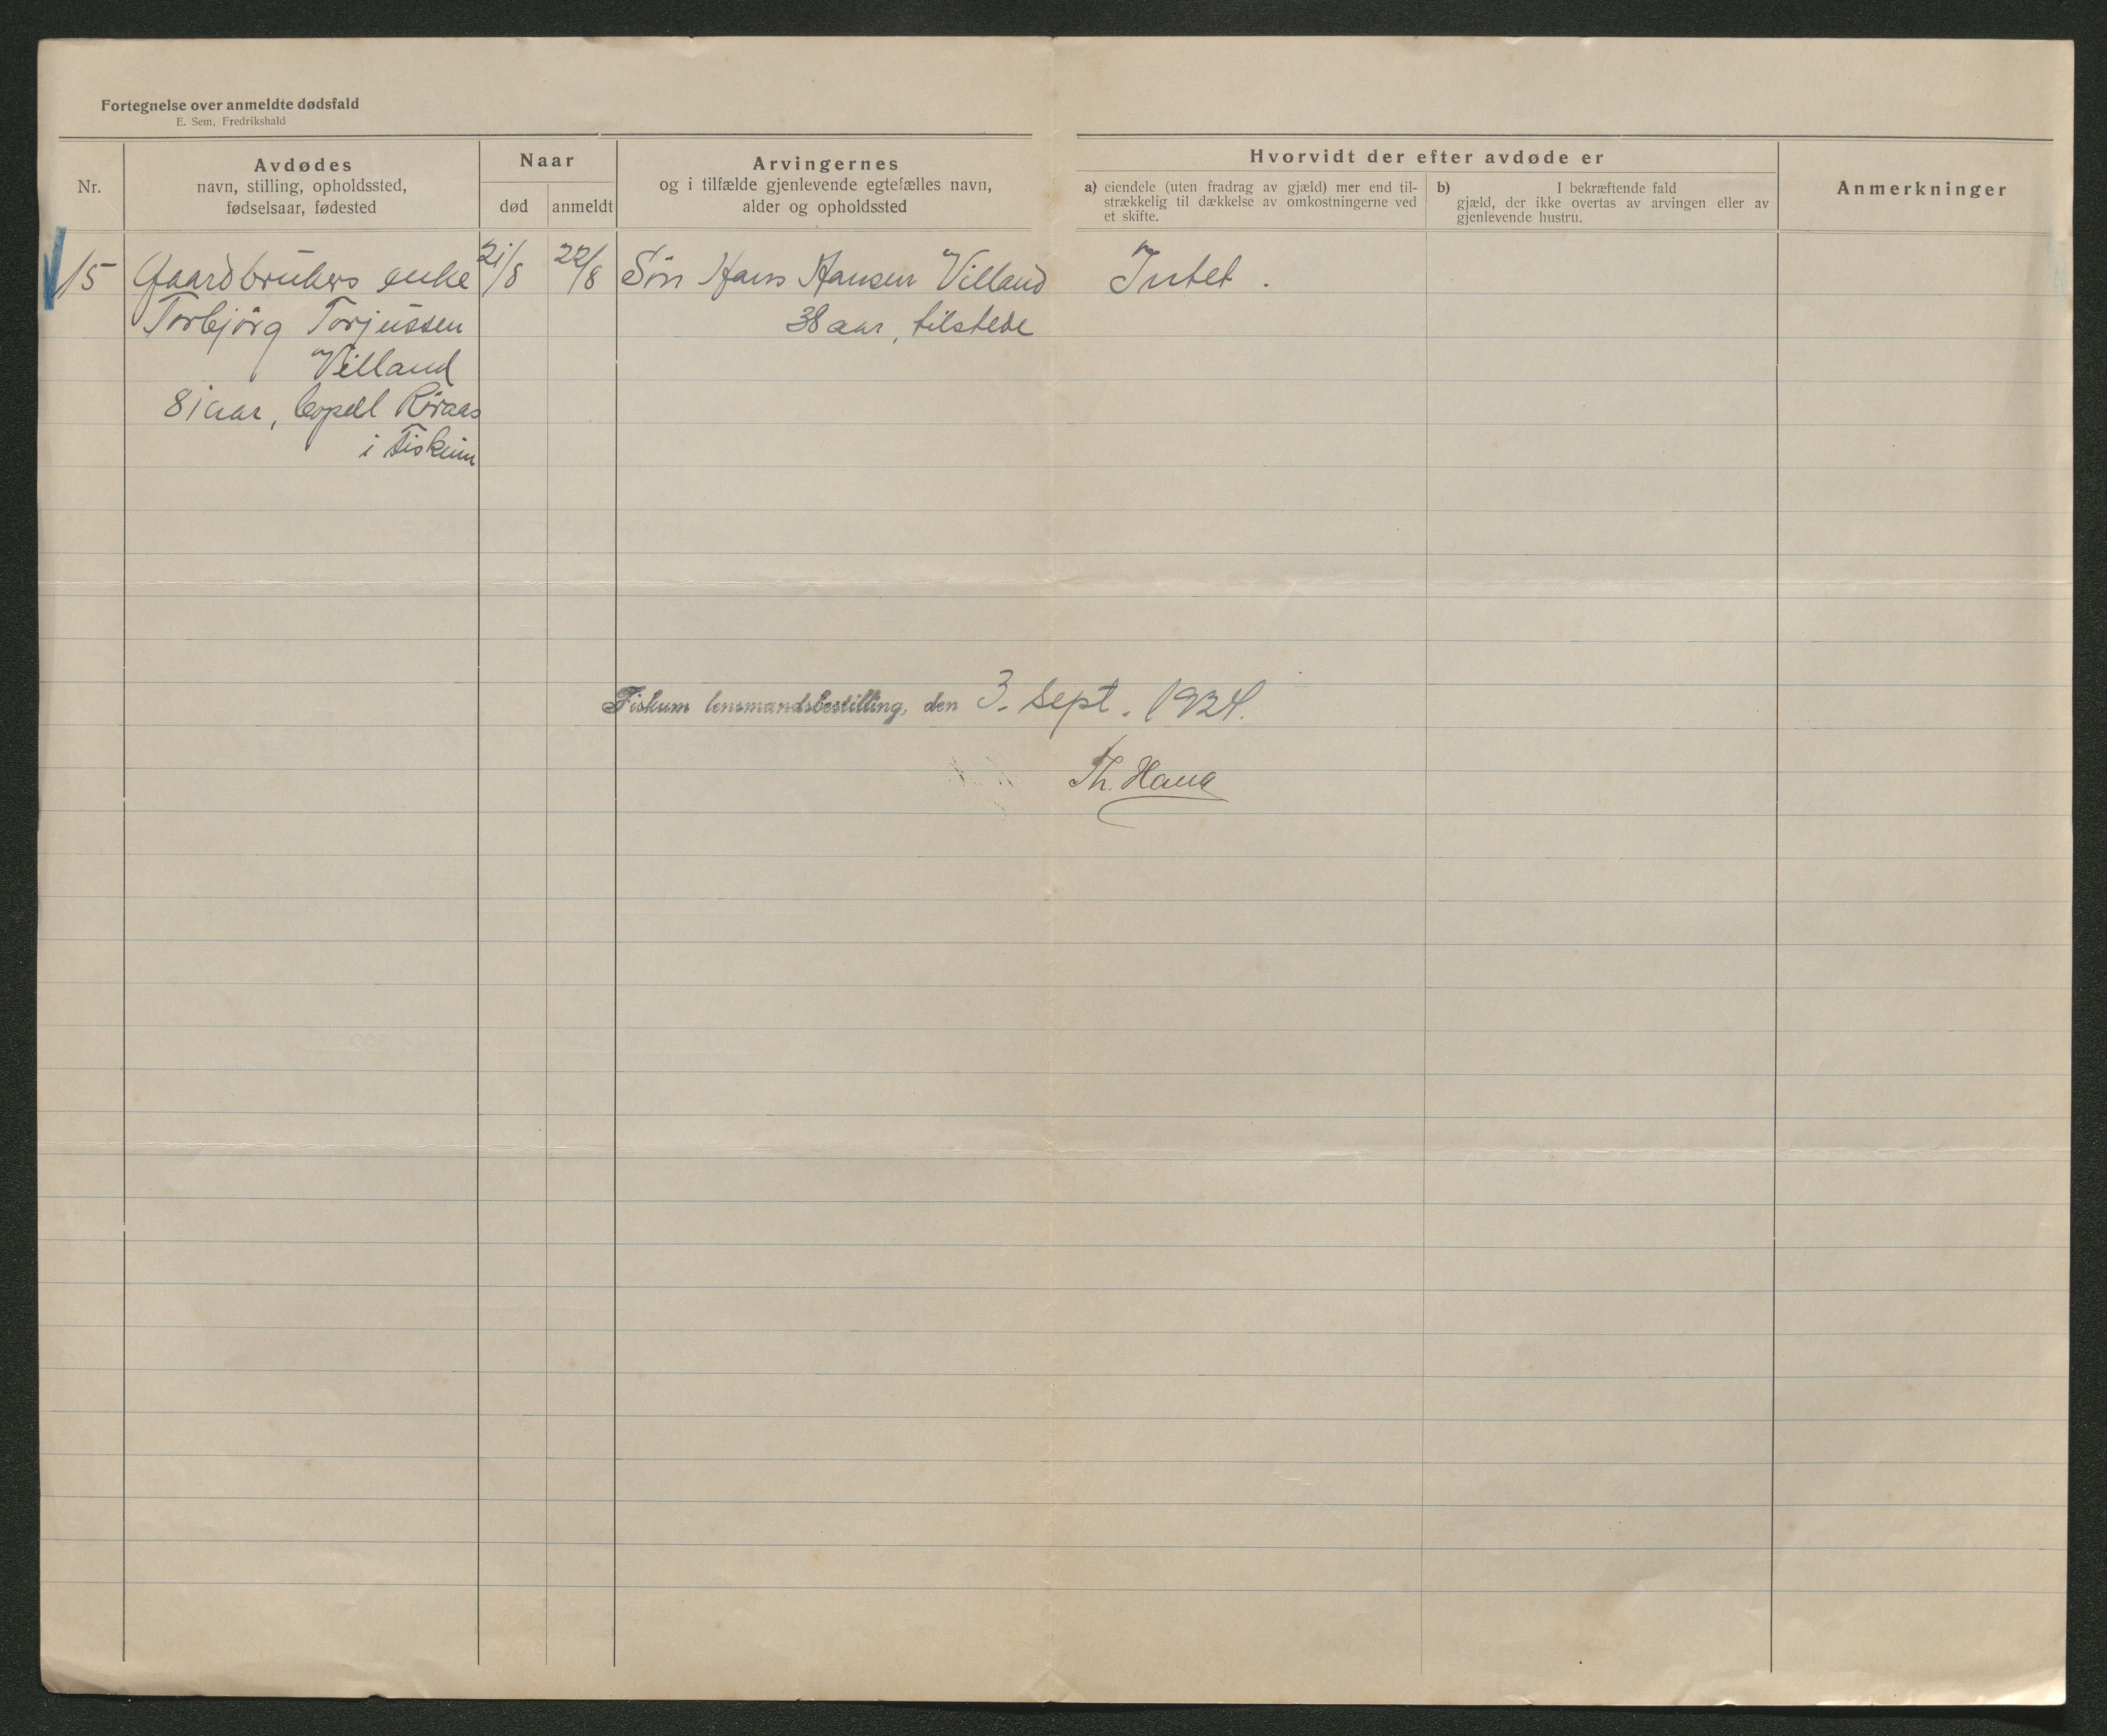 Fortegnelse over anmeldte dødsfald
E. Sem, Fredrikshald
Nr.
Avdødes
navn, stilling, opholdssted,
fødselsaar, fødested
Naar
død
anmeldt
Arvingernes
og i tilfælde gjenlevende egtefælles navn,
alder og opholdssted
Hvorvidt der efter avdøde er
a) eiendele (uten fradrag av gjæld) mer end til-
strækkelig til dækkelse av omkostningerne ved
et skifte.
b) I bekræftende fald
gjæld, der ikke overtas av arvingen eller av
gjenlevende hustru.
Anmerkninger
15
Gaardbrukers enke
Torbjørg Torjussen
Villand
81 aar, bopæl Røraas
i Fiskum
21/8
22/8
Søn Hans Hansen Villand
38 aar, tilstede
Intet.
Fiskum lensmandsbestilling, den 3. sept. 1924.
Th. Haug